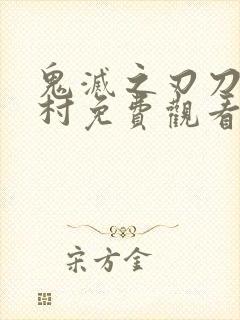 鬼滅之刃刀
村免費觀看
宋方金